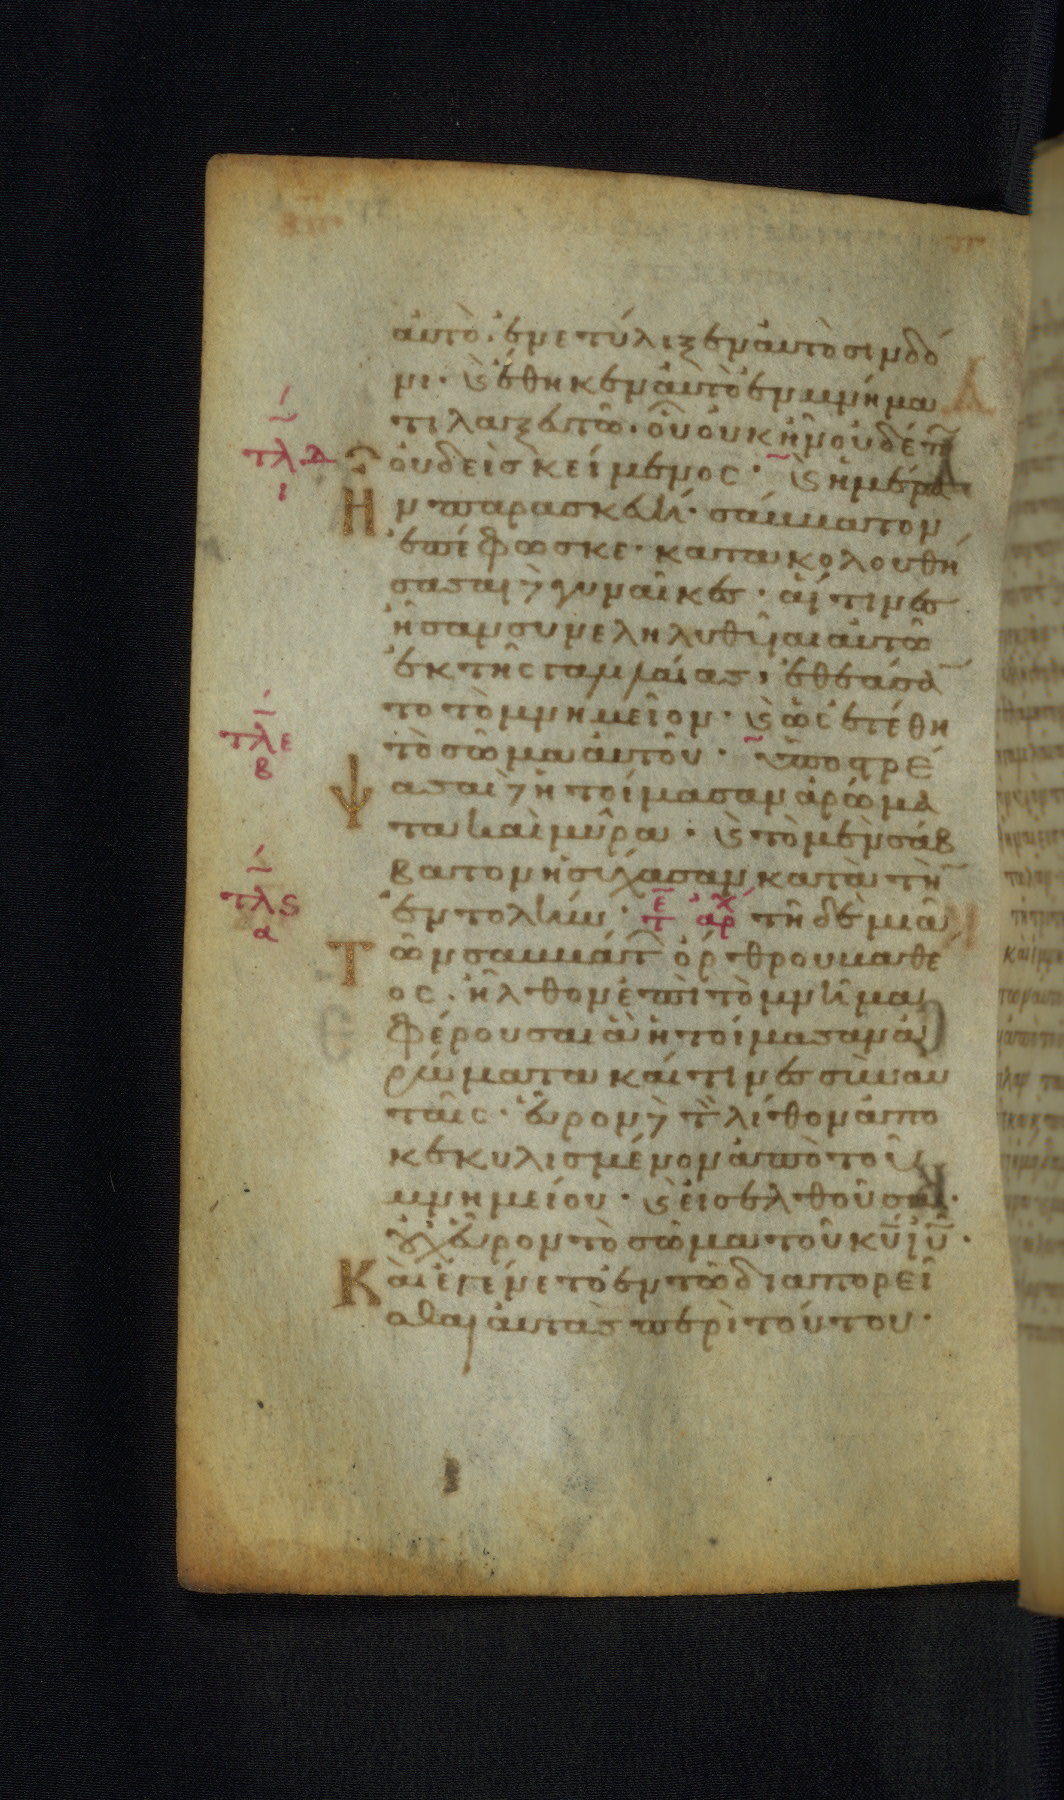 αὐτὸ· ἐνετύλιξεν αὐτὸ σινδό
νι· ϗ ἔθηκεν αὐτὸ ἐν μνήμα
τι λαξευτῶ· οὗ οὐκ ἦν οὐδέπω
τλδ
ι
οὐδεὶς κείμενος· ϗ ἡμέρα
ἦν παρασκευή· σάββατον
ἐπέφωσκε· κατακολουθή
σασαι δὲ γυναῖκες· αἵτινες
ἦσαν συνεληλυθῦιαι αὐτῶ
ἐκ τῆς γαλιλαίας, ἐθεάσα
το τὸ μνημεῖον· ϗ ὡς ἐτέθη
τλε
β
τὸ σῶμα αὐτοῦ· ὑποστρέ
ψασαι δὲ ἡτοίμασαν ἀρώμα
τα καὶ μῦρα· ϗ τὸ μὲν σάβ
βατον ἡσύχασαν κατὰ τὴν
τλς
α
ἐντολήν· τε ἀρχ τῆ δὲ μιᾶ
τῶν σαββάτ ὄρθρου βαθέ
ος· ἦλθον ἐπὶ τὸ μνῆμα
φέρουσαι ἃ ἡτοίμασαν ἀ
ρώματα καί τινες σὺν αυ
ταῖς· εὗρον δὲ τὸν λίθον ἀπο
κεκυλισμένον ἀπὸ τοῦ
μνημείου· ϗ εἰσελθοῦσαι·
οὐχ εὗρον τὸ σῶμα τοῦ κυ ιυ·
Καὶ ἐγένετο ἐν τῶ διαπορεῖ
σθαι αὐτὰς περὶ τούτου·